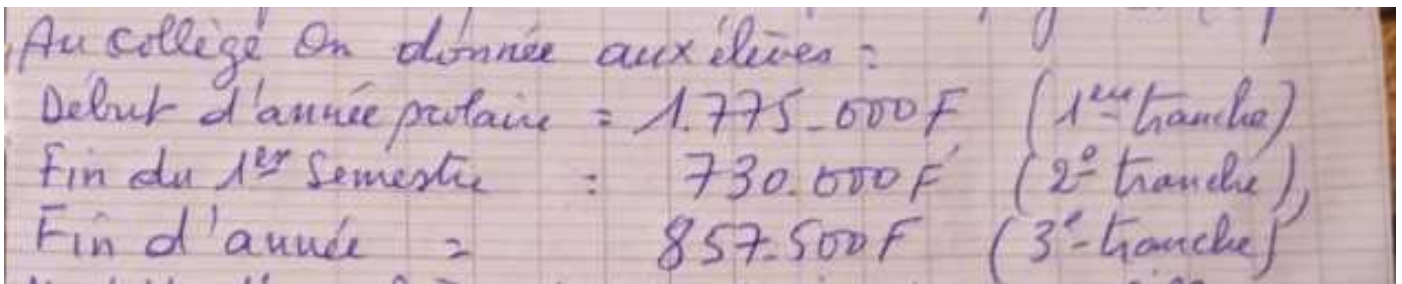 Au collège On donnée aux élèves :
Debut d'année scolaire = 1.775_000F (1ere tranche)
Fin du 1er Semestre : 730.000F (2e tranche),
Fin d'année = 857.500F (3e-tranche)